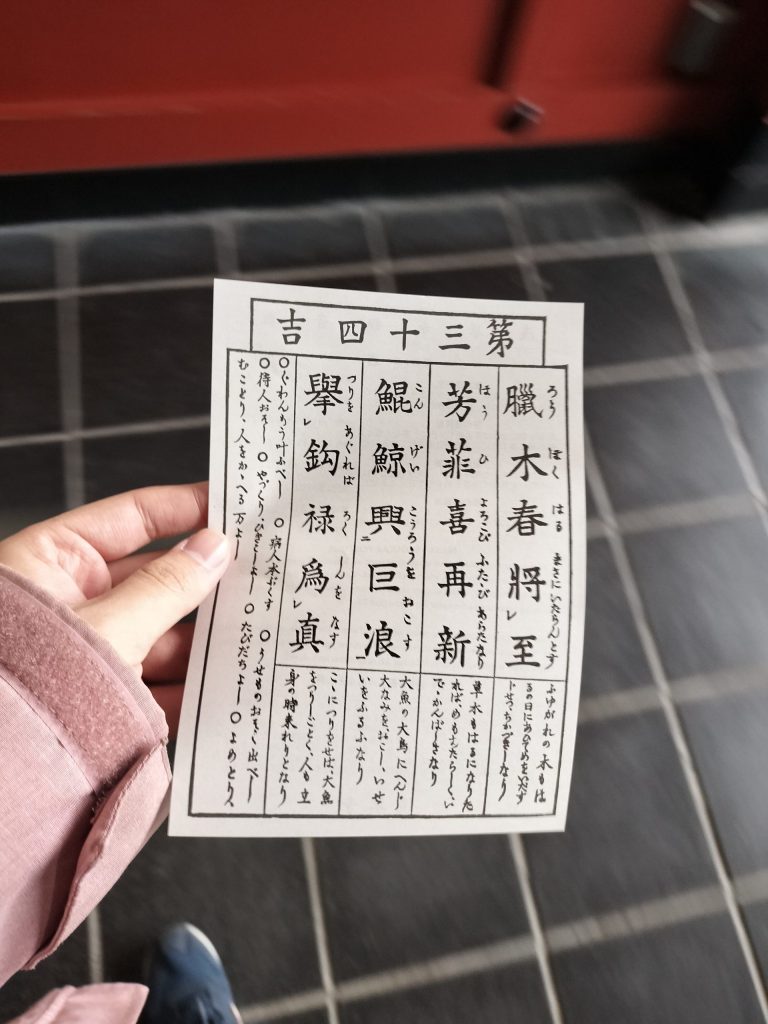 第三十四吉
臘木春將至
ろう ぼく はる まさに いたらんとす
ふゆがれの木もは
るの日にあひそめをいだす
じせつちかづきしなり
芳菲喜再新
はう ひ よろこび ふたゝび あらたなり
草木もはるになりた
れば、めもあたらしく、い
でゝかんばしきなり
鯤鯨興二巨浪一
こん げい こうろうを おこす
大魚の大鳥にへんじ
大なみをおこし、いせ
いをふるふなり
擧レ鈎禄爲レ真
つりを あぐれば ろく しんを なす
こゝにつりをせば、大魚
をつりごとく、人も立
身の時来れりとなり
○ぐわんもう叶ふべし ○病人本ぷくす ○うせものおそく出べし
○待人おそし ○やづくり、ひきこしよし ○たびだちよし ○よめとり、
むことり、人をかゝへる万よし